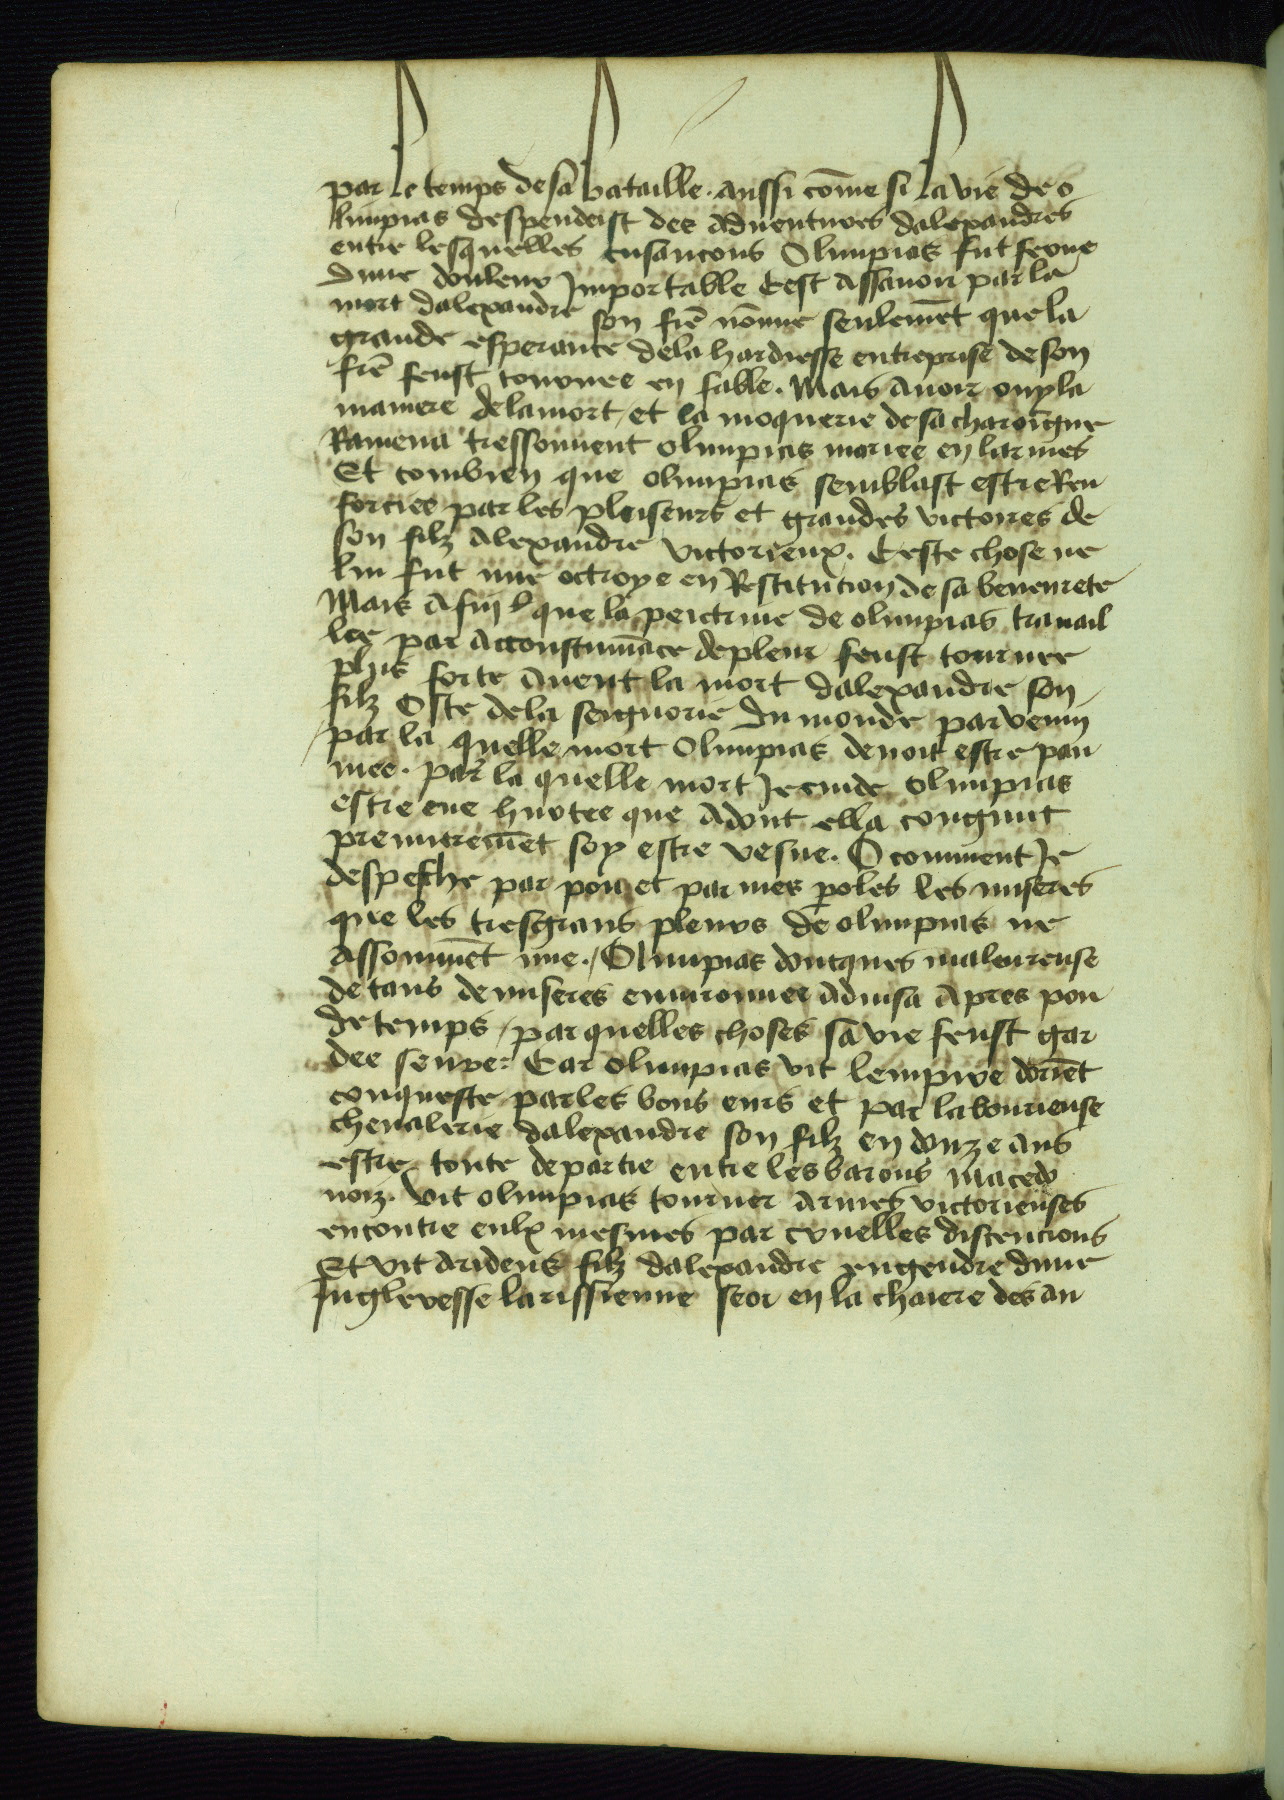 par le temps de sa bataille. aussi come si la vie de o
limpias despendeist des aduentures dalexandres
entre lesquelles cusancons Olimpias fut ferue
dune douleur Importable Cest assauoir par la
mort dalexandre son fre nonne seulemet que la
grande esperance de la hardiesse entreprise de son
fre feust tournee en fable. Mais auoir ouy la
maniere de la mort, et la moquerie de sa charoigne
Ramena tressouuent olimpias mariee en larmes
Et combien que olimpias semblast estre Ren
forciee par les pluiseurs et grandes victoires de
son filz Alexandre victorieux. Ceste chose ne
lui fut mie octroye en Restitucion de sa beneurete
Mais a fin que la peictrine de olimpias trauail
lee par accoustumace de pleur feust tournee
plus forte Auent la mort dalexandre son
filz Oste de la seignorie du monde par venin
par la quelle mort Olimpias deuoit estre pau
mee. par la quelle mort Je cuide olimpias
estre eue hurtee que adont ella congnut
premieremet soy estre vesue. O comment Je
despesche par pou et par mes poles les miseres
que les tresgrans pleurs de olimpias ne
assommet mie. Olimpias doncques maleureuse
de tans de miseres enuironnee aduisa apres pou
de temps, par quelles choses sa vie feust gar
dee seure. Car olimpias vit lempire doriet
conqueste par les bons eurs et par labourieuse
cheualerie dalexandre son filz en donze ans
estre toute departie entre les barons macedo
noiz. vit olimpias tourner armes victorieuses
encontre eulx mesmes par cruelles discencions
Et vit arideus filz dalexandre engendre dune
Jugleresse larissienne seoir en la chaiere des an